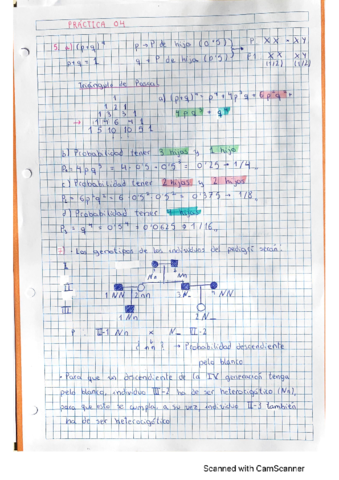 PRÁCTICA 04
5. a) (p+q)⁴ p → P de hijo (0'5) P XX × XY
p+q = 1 q → P de hija (0'5) F1 XX XY
(1/2) (1/2)
Triángulo de Pascal
1
1 2 1 a) (p+q)⁴ = p⁴ + 4p³q + 6p²q² +
1 3 3 1 4pq³ + q⁴
→ 1 4 6 4 1
1 5 10 10 5 1
b) Probabilidad tener 3 hijas y 1 hijo
4pq³ = 4 · 0'5 · 0'5³ = 0'25 → 1/4
c) Probabilidad tener 2 hijas y 2 hijos
6p²q² = 6 · 0'5² · 0'5² = 0'375 → 3/8
d) Probabilidad tener 4 hijas
q⁴ = 0'5⁴ = 0'0625 → 1/16
7) · Los genotipos de los individuos del pedigrí serán:
I
Nn Nn
II
1 NN 2 nn 3 N_ 4 NN
III
1 Nn 2 N_
P III-1 Nn × N_ III-2
nn → Probabilidad descendiente
pelo blanco
· Para que un descendiente de la IV generación tenga
pelo blanco, individuo III-2 ha de ser heterocigótico (Nn),
para que esto se cumpla, a su vez, individuo II-3 también
ha de ser heterocigótico
Scanned with CamScanner